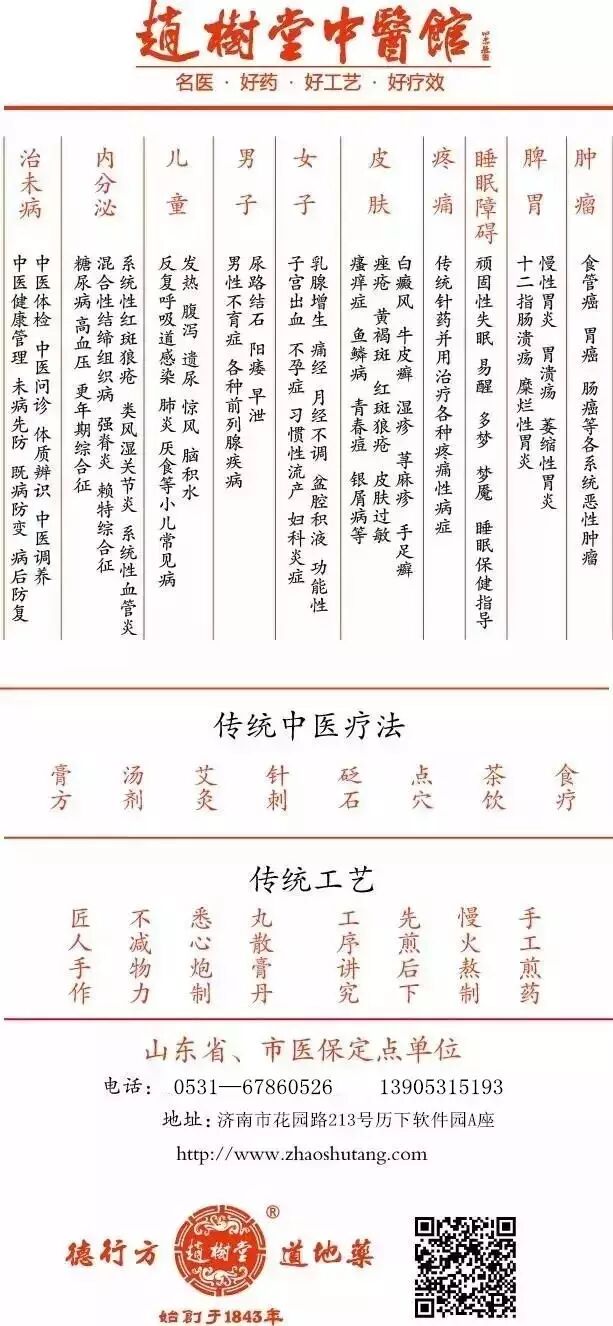 趙樹堂中醫館
名医·好药·好工艺·好疗效
肿瘤
食管癌 胃癌 肠癌等各系统恶性肿瘤
脾胃
慢性胃炎 胃溃疡 萎缩性胃炎
十二指肠溃疡 糜烂性胃炎
睡眠障碍
顽固性失眠 易醒 多梦 梦魇 睡眠保健指导
疼痛
传统针药并用治疗各种疼痛性病症
皮肤
白癜风 牛皮癣 湿疹 荨麻疹 手足癣
痤疮 黄褐斑 红斑狼疮 皮肤过敏
瘙痒症 鱼鳞病 青春痘 银屑病等
女子
乳腺增生 痛经 月经不调 盆腔积液 功能性
子宫出血 不孕症 习惯性流产 妇科炎症
男子
尿路结石 阳痿 早泄
男性不育症 各种前列腺疾病
儿童
发热 腹泻 遗尿 惊风 脑积水
反复呼吸道感染 肺炎 厌食等小儿常见病
内分泌
系统性红斑狼疮 类风湿关节炎 系统性血管炎
混合性结缔组织病 强脊炎 赖特综合征
糖尿病 高血压 更年期综合征
治未病
中医体检 中医问诊 体质辨识 中医调养
中医健康管理 未病先防 既病防变 病后防复
传统中医疗法
食疗
茶饮
点穴
砭石
针刺
艾灸
汤剂
膏方
传统工艺
手工煎药
慢火熬制
先煎后下
工序讲究
丸散膏丹
悉心炮制
不减物力
匠人手作
山东省、市医保定点单位
电话: 0531—67860526 13905315193
地址: 济南市花园路213号历下软件园A座
http://www.zhaoshutang.com
德行方 趙樹堂® 道地藥
始创于1843年